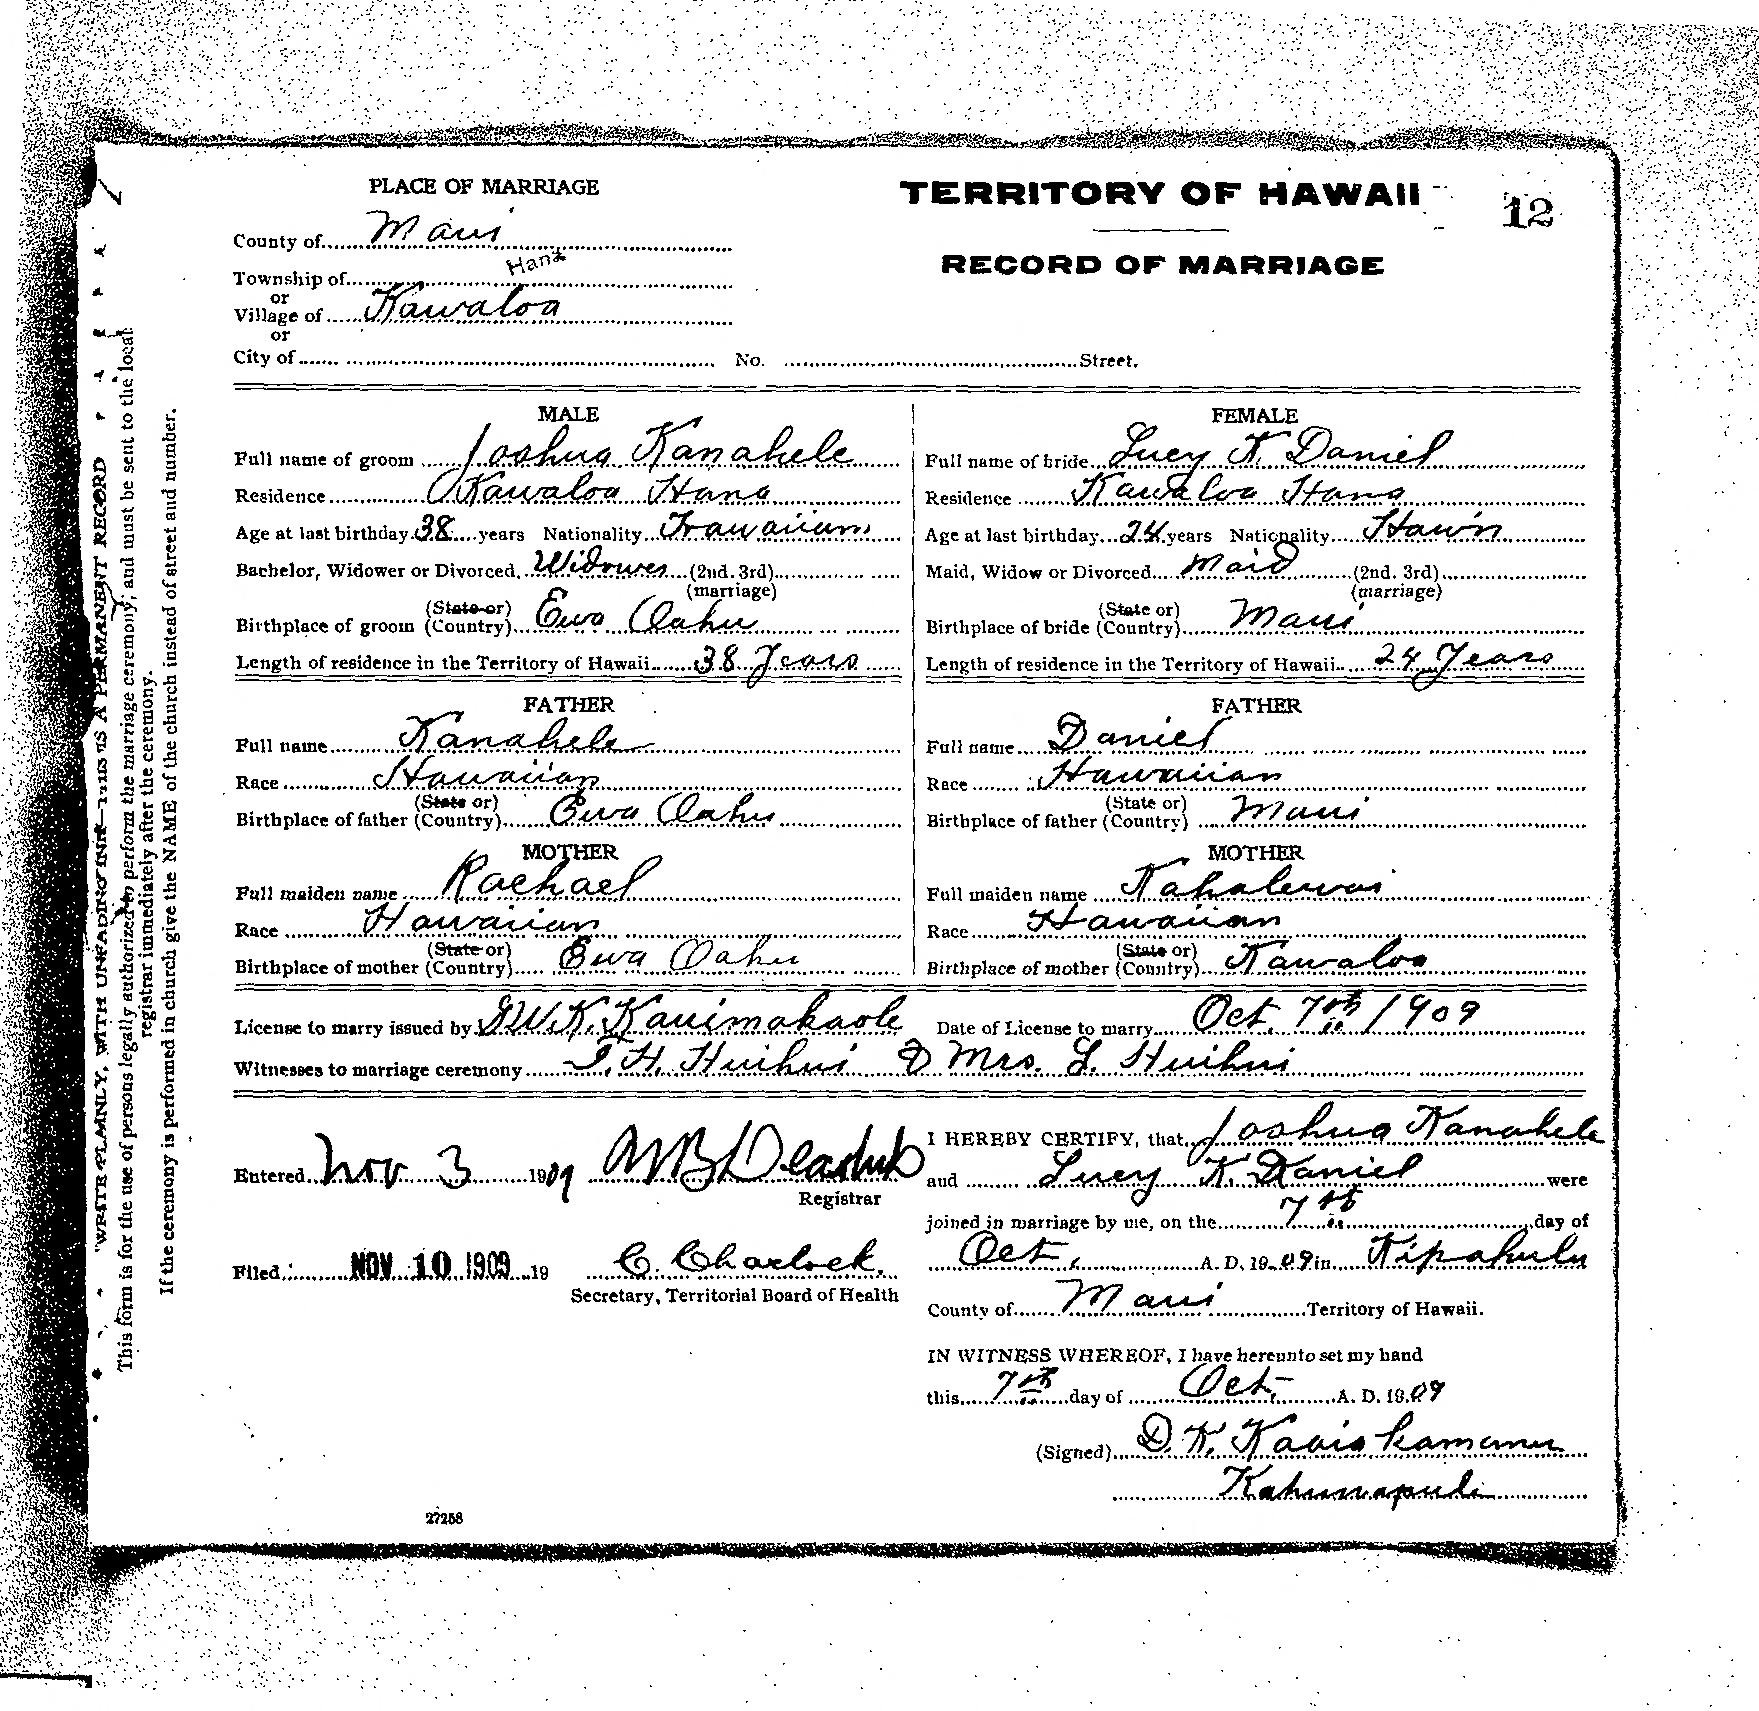 PLACE OF MARRIAGE
County of Maui
Township of Hana
or
Village of Kawaloa
or
City of No. Street.
TERRITORY OF HAWAII
12
RECORD OF MARRIAGE
MALE
Full name of groom Joshua Kanahele
Residence Kawaloa Hana
Age at last birthday 38 years Nationality Hawaiian
Bachelor, Widower or Divorced. Widower (2nd. 3rd)
(marriage)
Birthplace of groom (State or) (Country) Ewa Oahu
Length of residence in the Territory of Hawaii 38 Years
FATHER
Full name Kanahele
Race Hawaiian
Birthplace of father (State or) (Country) Ewa Oahu
MOTHER
Full maiden name Rachael
Race Hawaiian
Birthplace of mother (State or) (Country) Ewa Oahu
FEMALE
Full name of bride Lucy K. Daniel
Residence Kawaloa Hana
Age at last birthday 24 years Nationality Haw'n
Maid, Widow or Divorced Maid (2nd. 3rd)
(marriage)
Birthplace of bride (State or) (Country) Maui
Length of residence in the Territory of Hawaii 24 Years
FATHER
Full name Daniel
Race Hawaiian
Birthplace of father (State or) (Country) Maui
MOTHER
Full maiden name Kahalewai
Race Hawaiian
Birthplace of mother (State or) (Country) Kawaloa
License to marry issued by G.W.K. Kauimakaole Date of License to marry Oct. 7th 1909
Witnesses to marriage ceremony J. H. Huihui & Mrs. L. Huihui
Entered Nov 3 1909
Registrar
Filed NOV 10 1909 19 C. Charlock.
Secretary, Territorial Board of Health
I HEREBY CERTIFY, that Joshua Kanahele
and Lucy K. Daniel were
joined in marriage by me, on the 7th day of
Oct, A. D. 1909 in Kipahulu
County of Maui Territory of Hawaii.
IN WITNESS WHEREOF, I have hereunto set my hand
this 7th day of Oct, A. D. 1909
(Signed) D. K.
Kahunapule
27258
WRITE PLAINLY, WITH UNFADING INK—THIS IS A PERMANENT RECORD
This form is for the use of persons legally authorized to perform the marriage ceremony, and must be sent to the local
registrar immediately after the ceremony.
If the ceremony is performed in church give the NAME of the church instead of street and number.